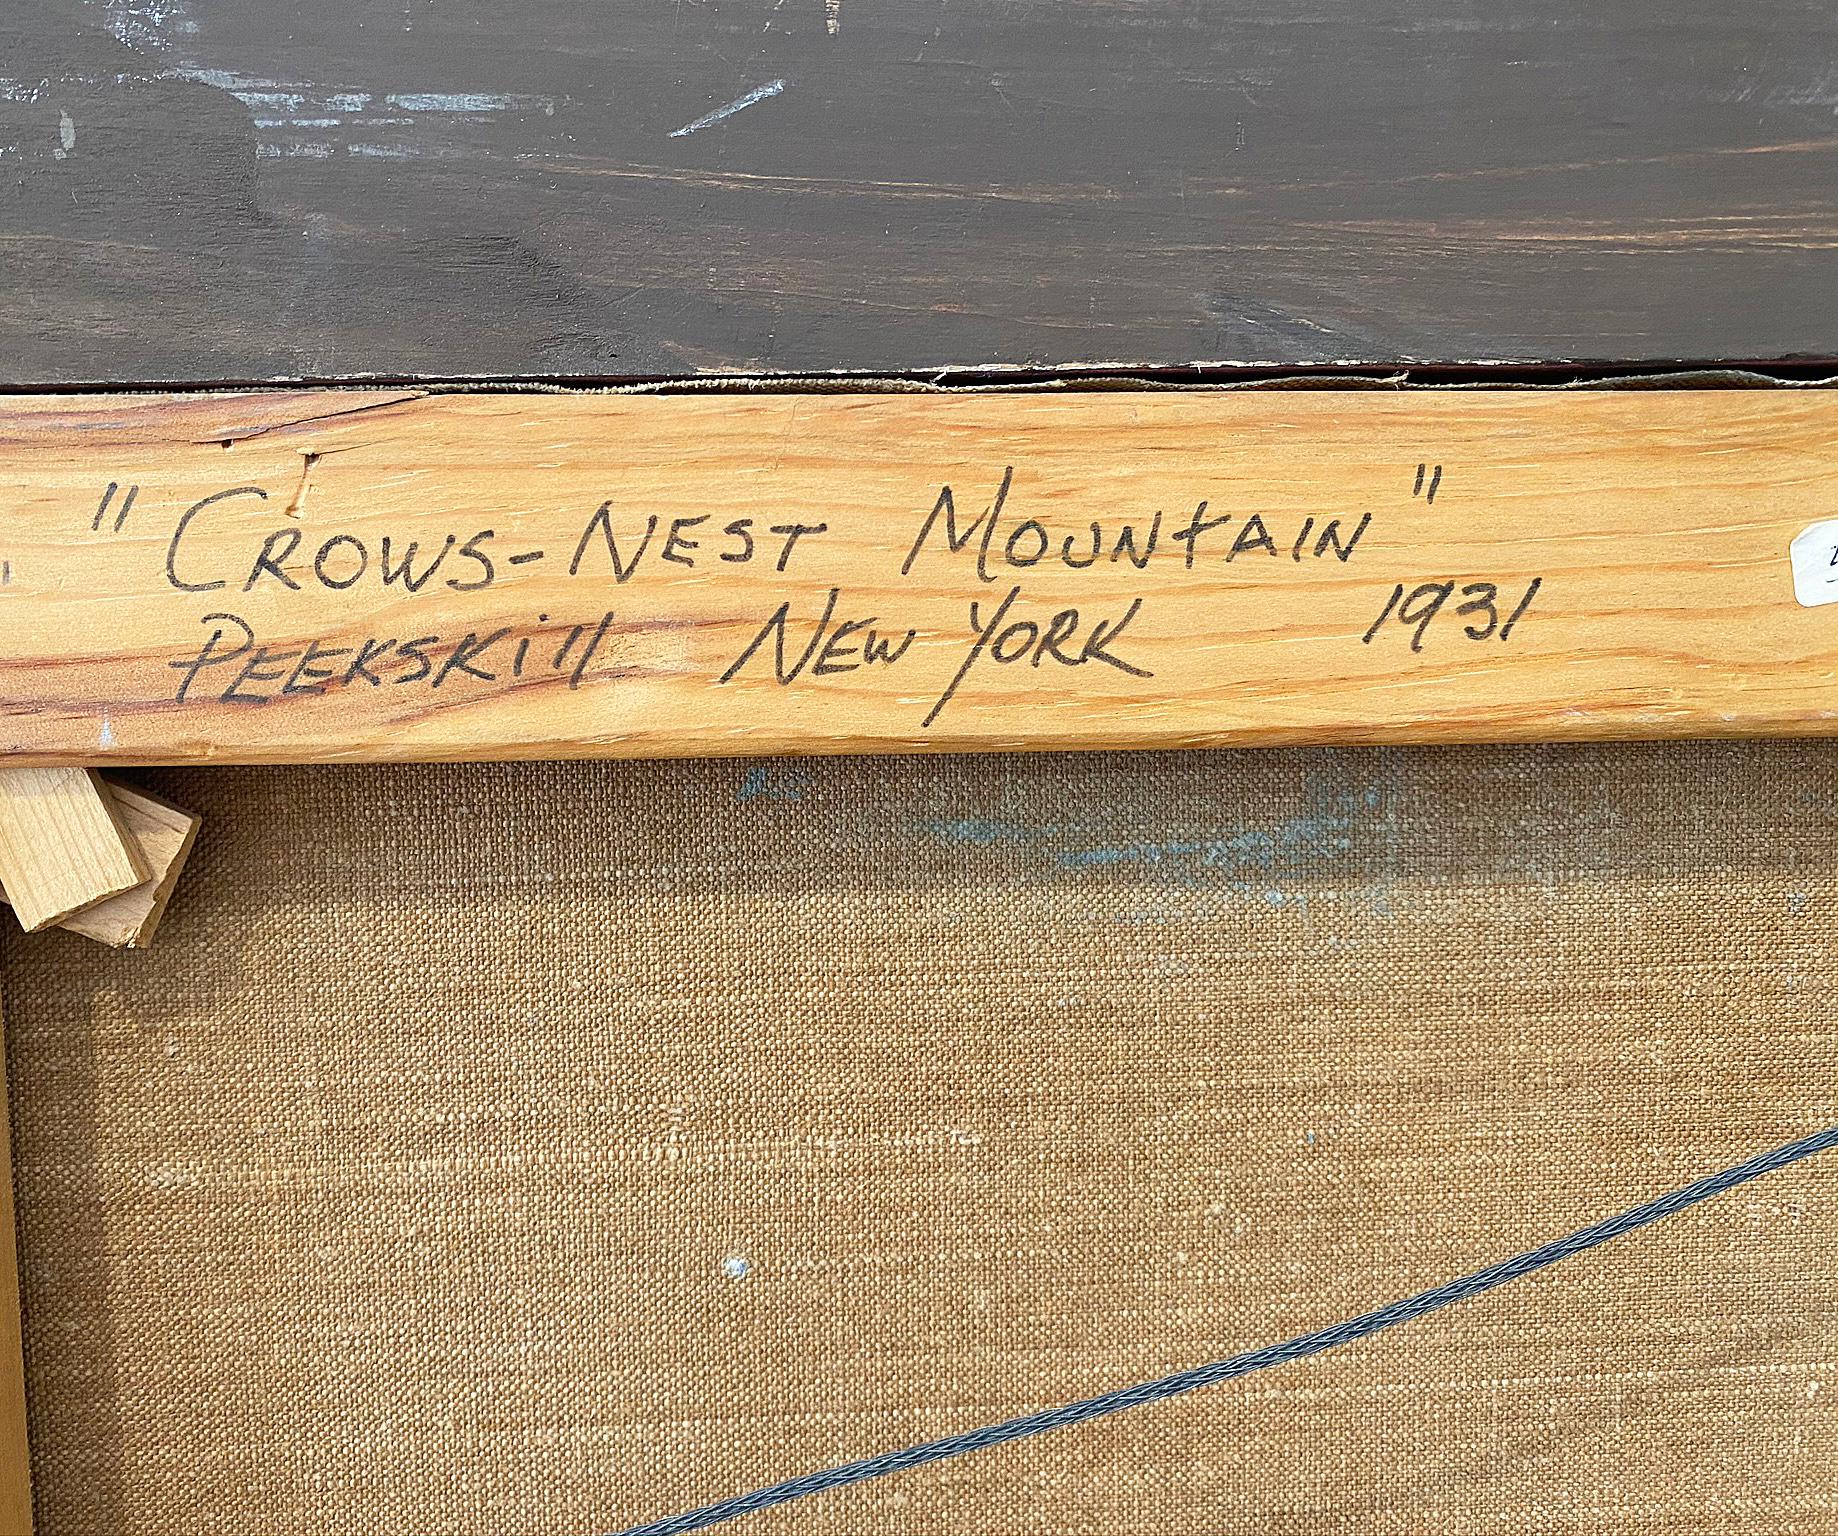 "CROWS-NEST MOUNTAIN"
PEEKSKill NEW YORK 1931